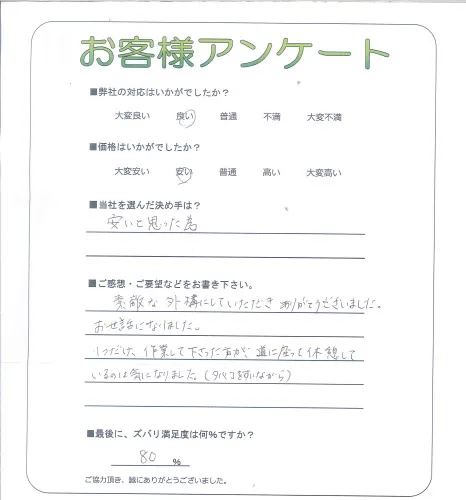 お客様アンケート
■弊社の対応はいかがでしたか？
大変良い 良い 普通 不満 大変不満
■価格はいかがでしたか？
大変安い 安い 普通 高い 大変高い
■当社を選んだ決め手は？
安いと思った為
■ご感想・ご要望などをお書き下さい。
素敵な外構にしていただきありがとうございました。
お世話になりました。
1つだけ、作業して下さった方が、道に座って休憩して
いるのは気になりました。(タバコをすいながら)
■最後に、ズバリ満足度は何%ですか？
80 %
ご協力頂き、誠にありがとうございました。